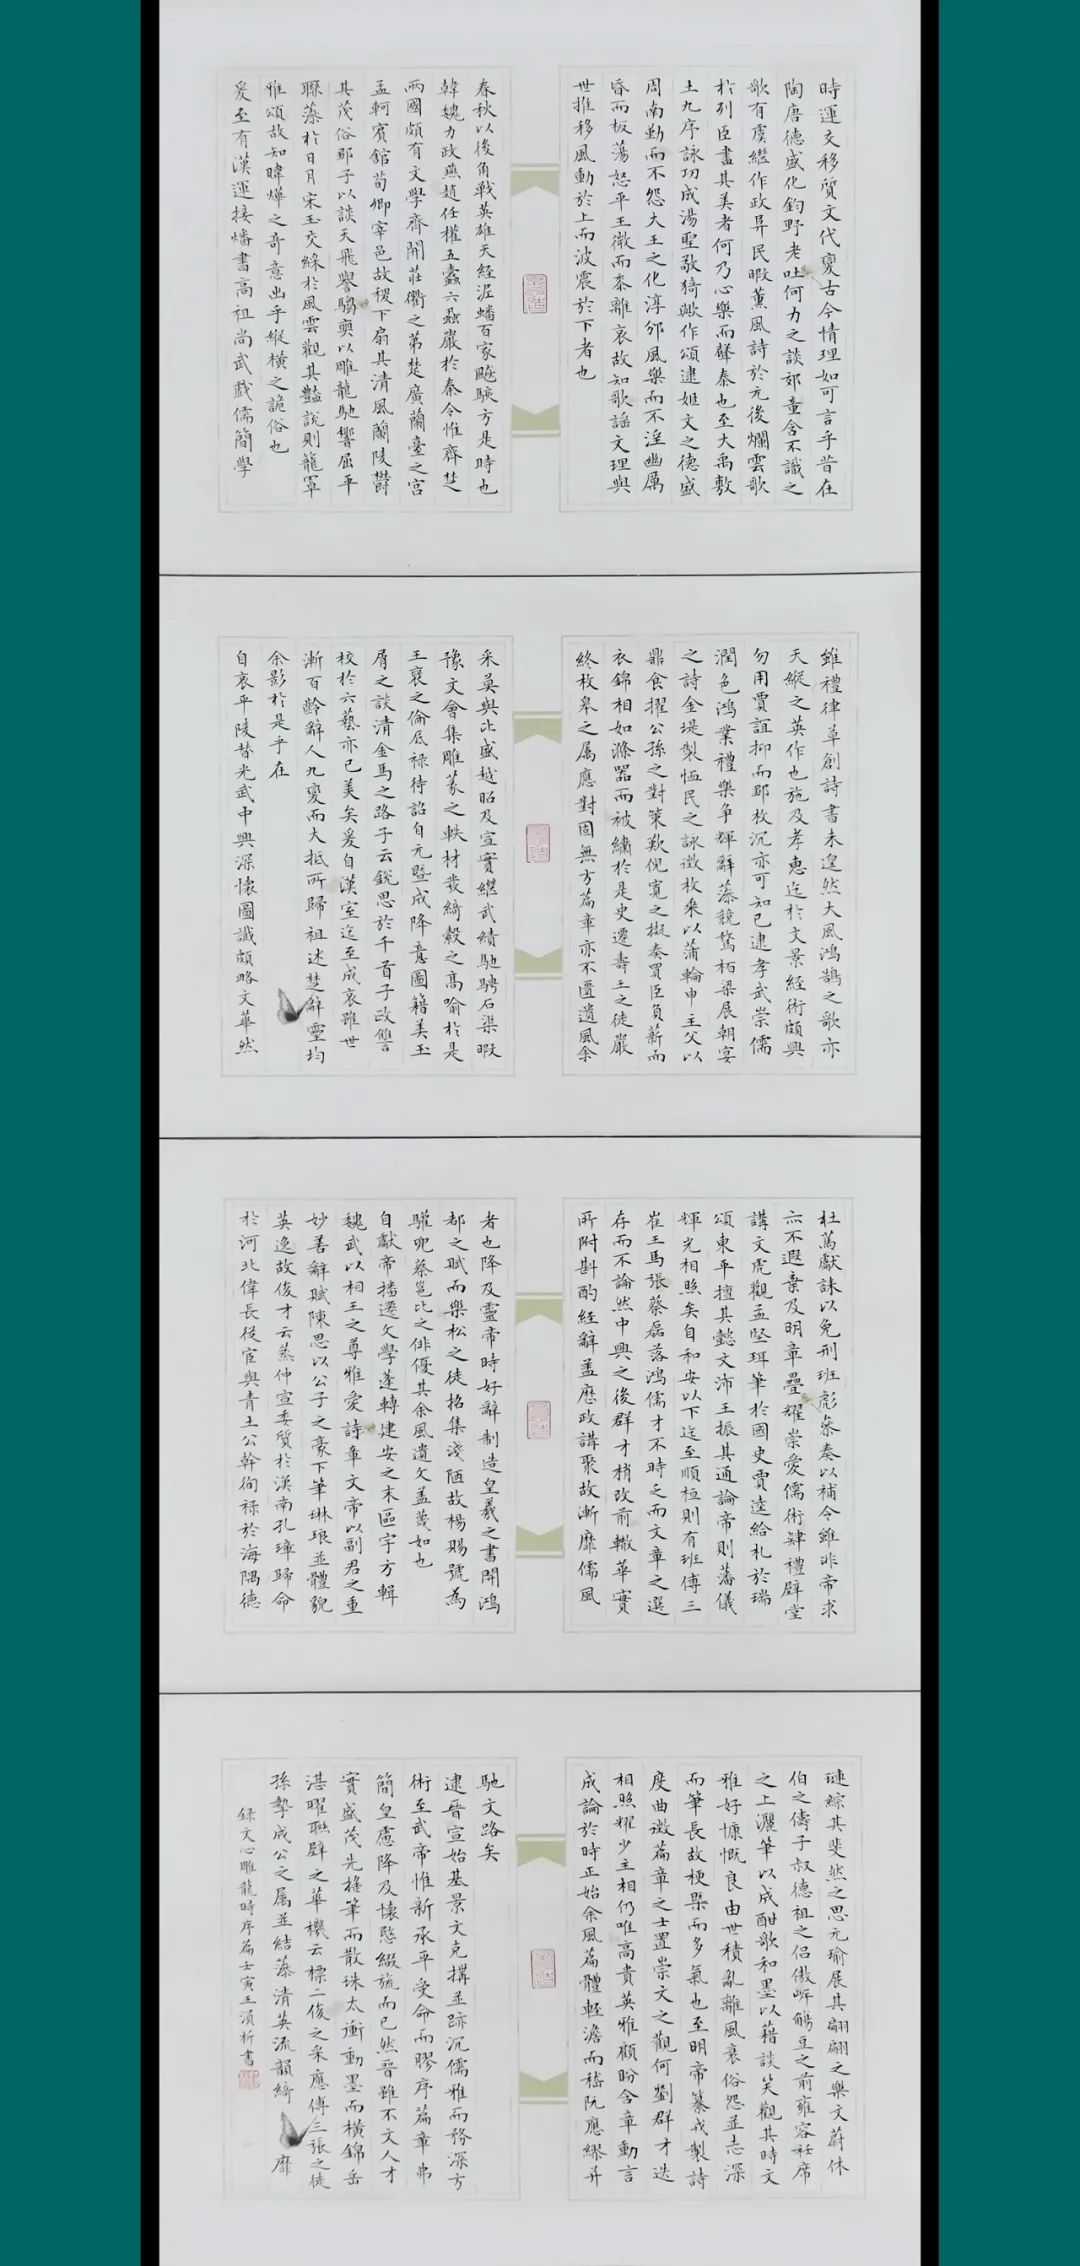 時運交移質文代變古今情理如可言乎昔在
陶唐德盛化鈞野老吐何力之談郊童含不識之
歌有虞繼作政阜民暇薰風詩於元後爛雲歌
於列臣盡其美者何乃心樂而聲泰也至大禹敷
土九序詠功成湯聖敬猗歟作頌逮姬文之德盛
周南勤而不怨大王之化淳邠風樂而不淫幽厲
昏而板蕩怒平王微而黍離哀故知歌謠文理與
世推移風動於上而波震於下者也
春秋以後角戰英雄六經泥蟠百家飈駭方是時也
韓魏力政燕趙任權五蠹六蝨嚴於秦令惟齊楚
兩國頗有文學齊開莊衢之第楚廣蘭臺之宮
孟軻賓館荀卿宰邑故稷下扇其清風蘭陵鬱
其茂俗鄒子以談天飛譽騶奭以雕龍馳響屈平
聯藻於日月宋玉交綵於風雲觀其豔說則籠罩
雅頌故知暐燁之奇意出乎縱橫之詭俗也
爰至有漢運接燔書高祖尚武戲儒簡學
雖禮律草創詩書未遑然大風鴻鵠之歌亦
天縱之英作也施及孝惠迄於文景經術頗興
勿用賈誼抑而鄒枚沉亦可知已逮孝武崇儒
潤色鴻業禮樂爭輝辭藻競騖柏梁展朝宴
之詩金堤製恤民之詠徵枚乘以蒲輪申主父以
鼎食擢公孫之對策歎倪寬之擬奏買臣負薪而
衣錦相如滌器而被繡於是史遷壽王之徒嚴
終枚皋之屬應對固無方篇章亦不匱遺風余
采莫與比盛越昭及宣實繼武績馳騁石渠暇
豫文會集雕篆之軼材發綺縠之高喻於是
王襃之倫底祿待詔自元暨成降意圖籍美玉
屑之談清金馬之路子云銳思於千首子政讐
校於六藝亦已美矣爰自漢室迄至成哀雖世
漸百齡辭人九變而大抵所歸祖述楚辭靈均
余影於是乎在
自哀平陵替光武中興深懷圖讖頗略文華然
杜萬獻誄以免刑班彪參奏以補令雖非帝求
亦不遐棄及明章疊耀崇愛儒術肄禮璧堂
講文虎觀孟堅珥筆於國史賈逵給札於瑞
頌東平擅其懿文沛王振其通論帝則藩儀
輝光相照矣自和安以下迄至順桓則有班傅三
崔王馬張蔡磊落鴻儒才不時乏而文章之選
存而不論然中興之後群才稍改前轍華實
所附斟酌經辭蓋歷政講聚故漸靡儒風
者也降及靈帝時好辭制造皇羲之書開鴻
都之賦而樂松之徒招集淺陋故楊賜號為
驩兜蔡邕比之俳優其余風遺文蓋蔑如也
自獻帝播遷文學蓬轉建安之末區宇方輯
魏武以相王之尊雅愛詩章文帝以副君之重
妙善辭賦陳思以公子之豪下筆琳琅並體貌
英逸故俊才云蒸仲宣委質於漢南孔璋歸命
於河北偉長從宦與青土公幹徇祿於海隅德
璉綜其斐然之思元瑜展其翩翩之樂文蔚休
伯之儔子叔德祖之侶傲岸觴豆之前雍容衽席
之上灑筆以成酣歌和墨以藉談笑觀其時文
雅好慷慨良由世積亂離風衰俗怨並志深
而筆長故梗概而多氣也至明帝纂戎製詩
度曲徵篇章之士置崇文之觀何劉群才迭
相照耀少主相仍唯高貴英雅顧盼含章動言
成論於時正始余風篇體輕澹而嵇阮應繆并
馳文路矣
逮晉宣始基景文克搆並跡沉儒雅而務深方
術至武帝惟新承平受命而膠序篇章弗
簡皇慮降及懷愍綴旒而已然晉雖不文人才
實盛茂先搖筆而散珠太衝動墨而橫錦岳
湛曜聯璧之華機云標二俊之采應傅三張之徒
孫摯成公之屬並結藻清英流韻綺靡
錄文心雕龍時序篇壬寅王湏析書